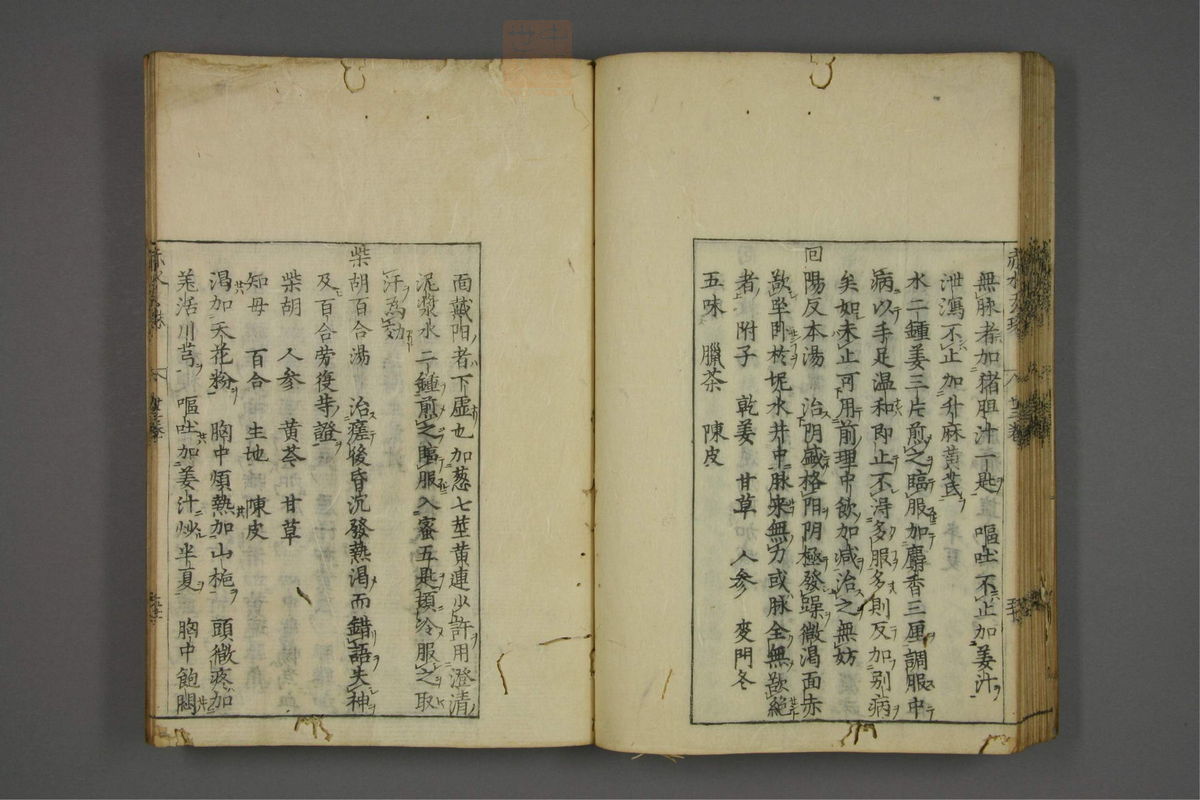 無脉者加猪胆汁一匙 嘔吐不止加姜汁
泄瀉不止加升麻黄芪
水二鍾姜三片煎之臨服加麝香三厘調服中
病以手足温和即止不得多服多則反加別病
矣如未止可用前理中飲加減治之無妨
回陽反本湯 治阴盛格阳阴極發躁微渴面赤
欲坐卧於坭水井中脉来無力或脉全無欲絶
者 附子 乾姜 甘草 人参 麥門冬
五味 臘茶 陳皮
面戴阳者下虛也加葱七莖黄連少許用澄清
泥漿水二鍾煎之臨服入蜜五匙頓冷服之取
汗為効
柴胡百合湯 治瘥後昏沉發熱渇而錯語失神
及百合劳復䒭證
柴胡 人参 黄芩 甘草
知母 百合 生地 陳皮
渇加天花粉 胸中煩熱加山梔 頭微疼加
羗活川芎 嘔吐加姜汁炒半夏 胸中飽悶